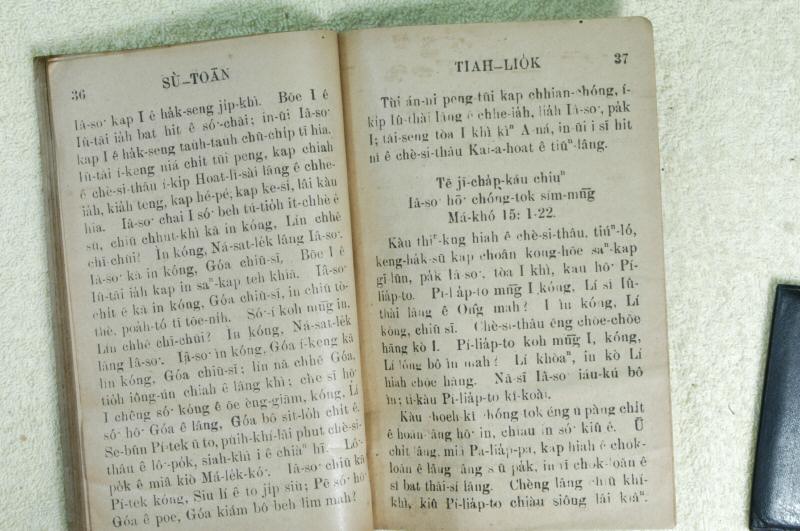 36
SÙ-TOĀN
Iâ-so͘ kap I ê ha̍k-seng ji̍p-khì. Bōe I ê
Iû-tāi ia̍h bat hit ê só͘-chāi; in-ūi Iâ-so͘
kap I ê ha̍k-seng tauh-tauh chū-chi̍p tī hia.
Iû-tāi í-keng niá chi̍t tūi peng, kap chiah
ê chè-si-thâu í-ki̍p Hoat-lī-sài lâng ê chhe-
ia̍h, kia̍h teng, kap hé-pé, kap ke-si, lâi kàu
hia. Iâ-so͘ chai I só͘ beh tú-tio̍h it-chhè ê
sū, chiū chhut-khì kā in kóng, Lín chhē
chī-chūi? In kóng, Ná-sat-le̍k lâng Iâ-so͘.
Iâ-so͘ kā in kóng, Góa chiū-sī. Bōe I ê
Iû-tāi ia̍h kap in saⁿ-kap teh khiā. Iâ-so͘
chi̍t ê kā in kóng, Góa chiū-sī, in chiū tò-
thè, poa̍h-tó tī tōe-nih. Só͘-í koh mn̄g in,
Lín chhē chī-chūi? In kóng, Ná-sat-le̍k
lâng Iâ-so͘. Iâ-so͘ ìn kóng, Góa í-keng kā
lín kóng, Góa chiū-sī; lín nā chhē Góa,
tio̍h iông-ún chiah ê lâng khì; che sī hō͘
I chêng só͘ kóng ê ōe èng-giām, kóng, Lí
só͘ hō͘ Góa ê lâng, Góa bô sit-lo̍h chi̍t ê.
Se-bûn Pí-tek ū to, pu̍ih-khí-lâi phut chè-si-
thâu ê lô͘-po̍k, siah-khì i ê chiàⁿ hī. Lô͘-
po̍k ê miâ kiò Má-le̍k-kó͘. Iâ-so͘ chiū kā
Pí-tek kóng, Siu lí ê to ji̍p siu; Pē só͘ hō͘
Góa ê poe, Góa kiám bô beh lim mah?
TIAH-LIO̍K
37
Tūi án-ni peng-tūi kap chhian-chóng, í-
ki̍p Iû-thài lâng ê chhe-ia̍h, lia̍h Iâ-so͘, pa̍k
I; tāi-seng tòa I khì kìⁿ A-ná, in-ūi i sī hit
nî ê chè-si-thâu Kai-a-hoat ê tiūⁿ-lâng.
Tē jī-cha̍p-káu chiuⁿ
Iâ-so͘ hō͘ chóng-tok sím-mn̄g
Má-khó 15: 1-22.
Kàu thiⁿ-kng hiah ê chè-si-thâu, tiúⁿ-ló,
keng-ha̍k-sū kap choân kong-hōe saⁿ-kap
gī-lūn, pa̍k Iâ-so͘, tòa I khì, kau hō͘ Pí-
lia̍p-to. Pí-lia̍p-to mn̄g I kóng, Lí sī Iû-
thài lâng ê Ông mah? I ìn kóng, Lí
kóng, chiū sī. Chè-si-thâu ēng chōe-chōe
hāng kò I. Pí-lia̍p-to koh mn̄g I, kóng,
Lí lóng bô ìn mah? Lí khòaⁿ, in kò Lí
hiah chōe hāng. Nā-sī Iâ-so͘ iáu-kú bô
ìn; tì-kàu Pí-lia̍p-to kî-koài.
Kàu choeh-kî chóng-tok éng ū pàng chi̍t
ê hoān-lâng hō͘ in, chiàu in só͘ kiû ê. Ū
chi̍t lâng, miâ Pa-lia̍p-pa, kap hiah ê chok-
loān ê lâng lâng sū pa̍k, in tī chok-loān ê
sî bat thâi-sí lâng. Chèng lâng chiū khí-
khì, kiû Pí-lia̍p-to chiàu siông lâi kiâⁿ.